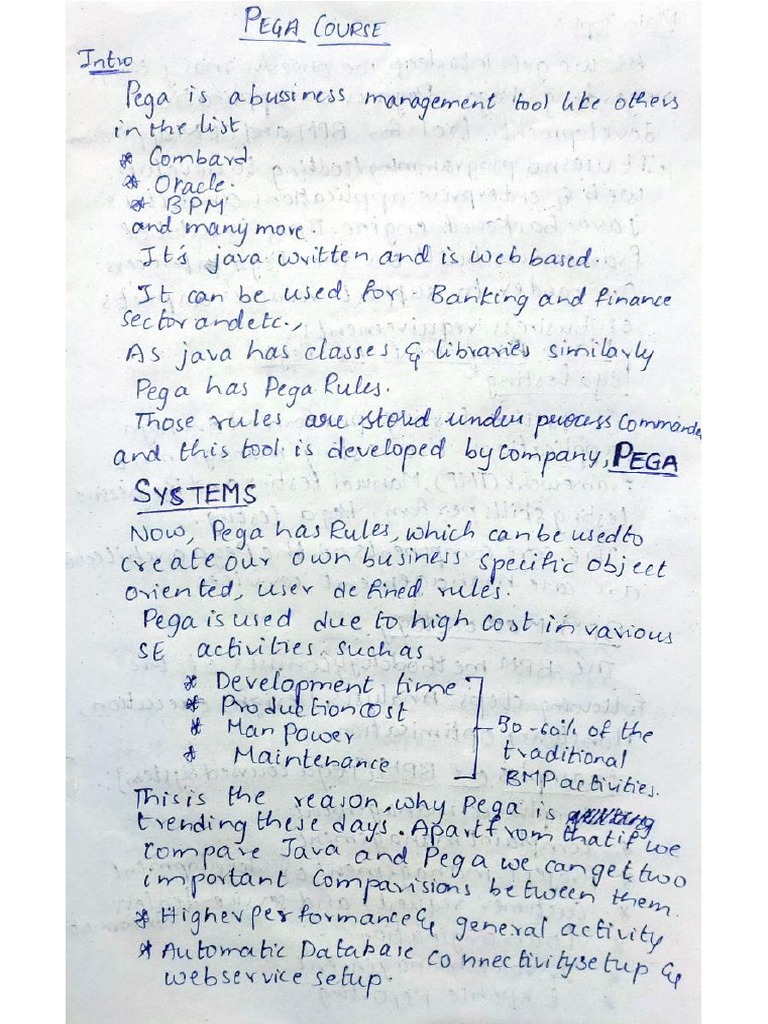 PEGA COURSE
Intro
Pega is a bussiness management tool like others
in the list
* Combard
* Oracle.
* BPM
and many more.
It's java written and is web based.
It can be used for Banking and finance
sector and etc.,
As java has classes & libraries similarly
Pega has Pega Rules.
Those rules are stord under process Commander
and this tool is developed by company, PEGA
SYSTEMS
Now, Pega has Rules, which can be used to
create our own business specific object
oriented, user defined rules.
Pega is used due to high cost in various
SE activities such as
* Development time
* Production cost
* Man Power
* Maintenance
50-60% of the
traditional
BMP activities.
This is the reason, why Pega is
trending these days. Apart from that if we
compare Java and Pega we can get two
important Comparisions between them.
* Higher performance & general activity
* Automatic Database connectivity setup &
webservice setup.